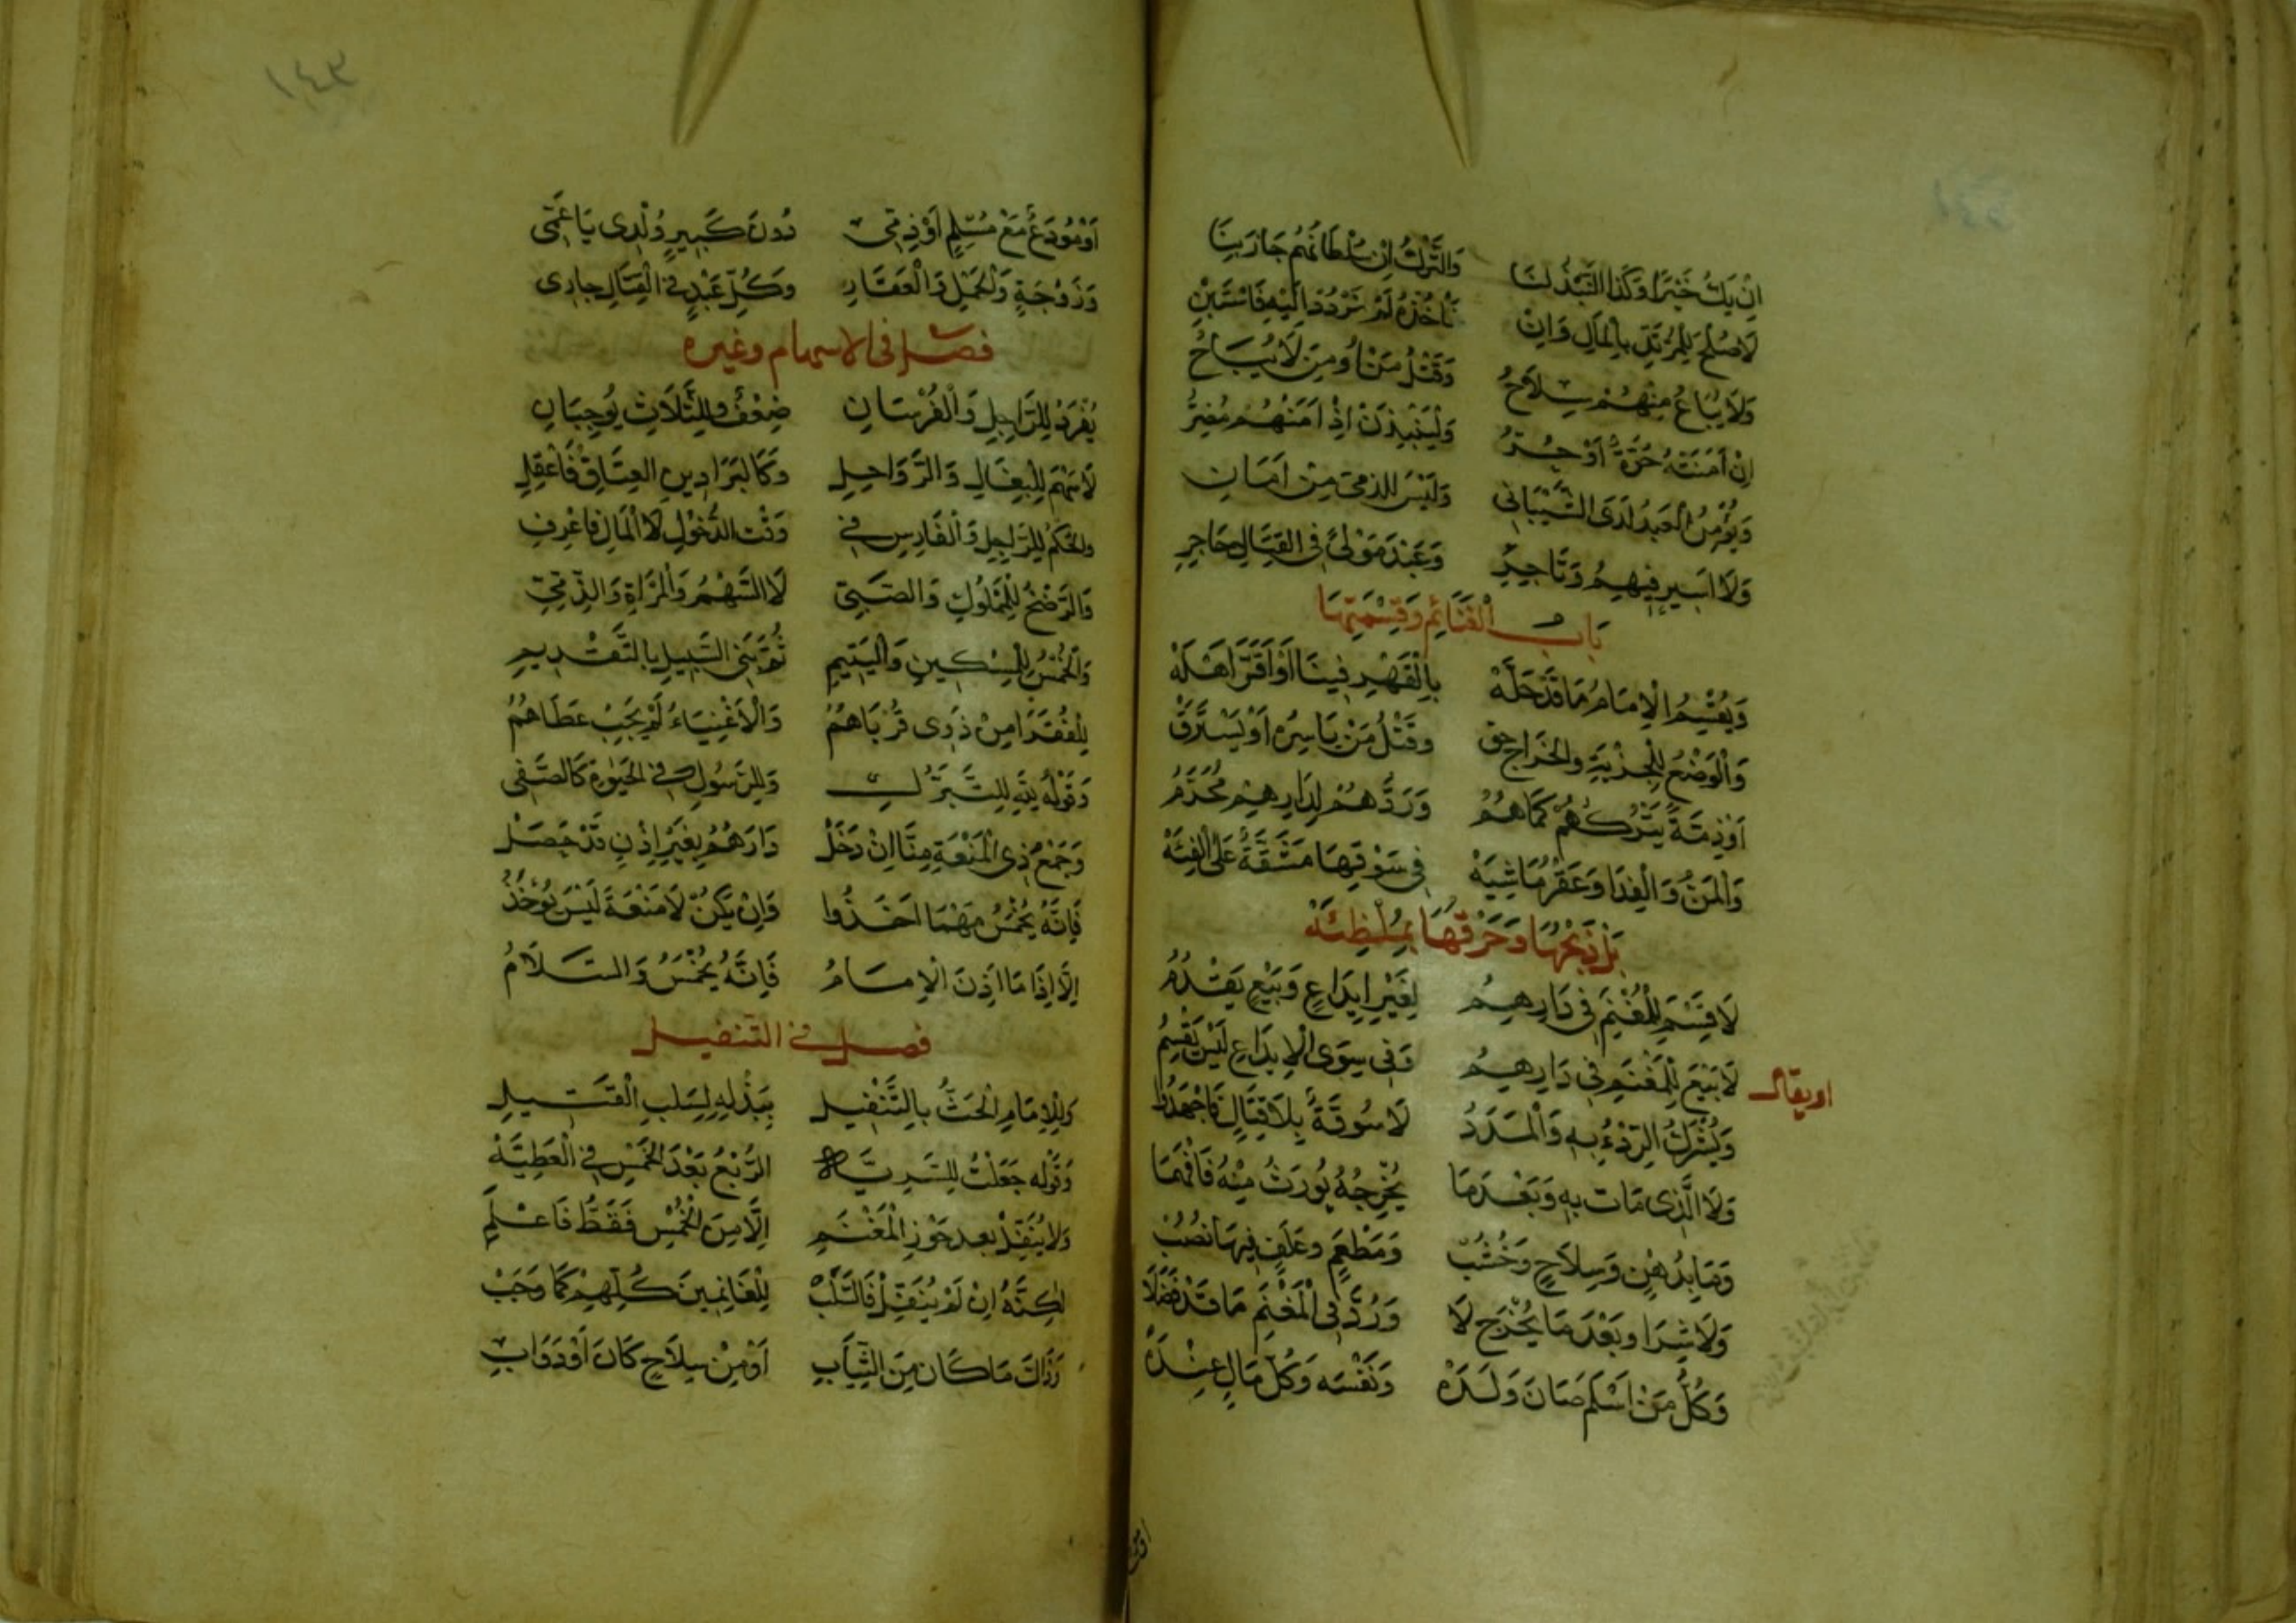 اِنْ يَكُ خَيْرًا وَكَذَا النَّبْذُ لَنَا وَالتَّرْكُ اِنْ سُلْطَانُهُمْ جَارَ بِنَا
لَا صُلْحَ لِلْمُرْتَدِّ بِالْمَالِ وَاِنْ نَأْخُذْهُ لَمْ نَرْدُدْ اِلَيْهِ فَاسْتَبِنْ
وَلَا يُبَاعُ مِنْهُمْ سِلَاحُ وَقَتْلُ مَنْ اُومِنَ لَا يُبَاحُ
اِنْ اَمَنَتْهُ حُرَّةٌ اَوْ حُرُّ وَلْيَنْبِذَنْ اِذْ اَمَنَهُمْ مُضِرُّ
وَيُؤْمِنُ الْعَبْدُ لَدَى الشَّيْبَانِي وَلَيْسَ لِلذِّمِّي مِنْ اَمَانِ
وَلَا اَسِيرٍ فِيهِمُ وَتَاجِرِ وَعَبْدِ مَوْلًى فِي الْقِتَالِ حَاجِرِ
بَابُ الْغَنَائِمِ وَقِسْمَتِهَا
وَيَقْسِمُ الْاِمَامُ مَا قَدْ حَلَّهْ بِالْقَهْرِ فِينَا اَوْ اَقَرَّ اَهْلَهْ
وَالْوَضْعُ لِلْجِزْيَةِ وَالْخَرَاجِ حَقّ وَقَتْلُ مَنْ يَأْسِرُهُ اَوْ يُسْتَرَقّ
اَوْ ذِمَّةً يَتْرُكُهُمْ كَمَا هُمُ وَرَدُّهُمْ لِدَارِهِمْ مُحَرَّمُ
وَالْمَنُّ وَالْفِدَا وَعَقْرُ مَاشِيَهْ فِي سَوْقِهَا مَشَقَّةٌ عَلَى الْفِئَهْ
بَلْ ذَبْحُهَا وَحَرْقُهَا
لَا قَسْمَ لِلْمَغْنَمِ فِي دَارِهِمُ لِغَيْرِ اِيدَاعٍ وَبَيْعٍ يَقْدُمُ
اويقال لَا بَيْعَ لِلْمَغْنَمِ فِي دَارِهِمُ وَفِي سِوَى الْاِيدَاعِ لَيْسَ يَقْسِمُ
وَيُشْرَكُ الرِّدْءُ بِهِ وَالْمَدَدُ لَا سُوقَةٌ بِلَا قِتَالٍ فَاجْهَدُوا
وَلَا الَّذِي مَاتَ بِهِ وَبَعْدَ مَا يُخْرِجُهُ يُورَثُ مِنْهُ فَافْهَمَا
وَمَا بِدُهْنٍ وَسِلَاحٍ وَخَشَبْ وَمَطْعَمٍ وَعَلَفٍ فِيهَا
وَلَا شِرَا وَبَعْدَ مَا يُخْرَجُ لَا وَرُدَّ فِي الْمَغْنَمِ مَا قَدْ فَضَلَا
وَكُلُّ مَنْ اَسْلَمَ صَانَ وَلَدَهْ وَنَفْسَهُ وَكُلَّ مَالٍ عِنْدَهْ
١٤٣
اَوْ مُودَعٌ مَعْ مُسْلِمٍ اَوْ ذِمِّيِ دُونَ كَبِيرٍ وُلْدِي يَا عَمِّي
وَزَوْجَةٍ وَالْحَمْلِ وَالْعَقَارِ وَكُلِّ عَبْدٍ فِي الْقِتَالِ جَارِي
فصل فى الاسهام وغيره
يُفْرَدُ لِلرَّاجِلِ وَالْفُرْسَانِ ضِعْفٌ وَلِلثَّلَاثِ يُوجِبَانِ
لَا سَهْمَ لِلْبِغَالِ وَالرَّوَاحِلِ وَكَالْبَرَاذِينِ الْعِتَاقُ فَاعْقِلِ
وَالْحُكْمُ لِلرَّاجِلِ وَالْفَارِسِ فِي وَقْتِ الدُّخُولِ لَا الْمَآلِ فَاعْرِفِ
وَالرَّضْخُ لِلْمَمْلُوكِ وَالصَّبِيِّ لَا السَّهْمُ وَالْمَرْاَةِ وَالذِّمِّيِّ
وَالْخُمْسُ لِلْمِسْكِينِ وَالْيَتِيمِ ثُمَّ بَنِي السَّبِيلِ بِالتَّقْدِيمِ
لِلْفُقَرَا مِنْ ذَوِي قُرْبَاهُمُ وَالْاَغْنِيَاءُ لَمْ يَجِبْ عَطَاهُمُ
وَقَوْلُهُ لِلّٰهِ لِلتَّبَرُّكِ وَلِلرَّسُولِ فِي الْحَيٰوةِ كَالصَّفِي
وَجَمْعُ ذِي الْمَنْعَةِ مِنَّا اِنْ دَخَلْ دَارَهُمُ بِغَيْرِ اِذْنٍ قَدْ حَصَلْ
فَاِنَّهُ يُخْمَسُ مَهْمَا اَخَذُوا وَاِنْ يَكُنْ لَا مَنْعَةٌ لَيْسَ يُؤْخَذُ
اِلَّا اِذَا مَا اَذِنَ الْاِمَامُ فَاِنَّهُ يُخْمَسُ وَالسَّلَامُ
فصل فى التنفيل
وَلِلْاِمَامِ الْحَثُّ بِالتَّنْفِيلِ بِبَذْلِهِ لِسَلَبِ الْقَتِيلِ
وَقَوْلُهُ جَعَلْتُ لِلسَّرِيَّهْ الرُّبْعُ بَعْدَ الْخُمْسِ فِي الْعَطِيَّهْ
وَلَا يُنَفَّلْ بَعْدَ حَوْزِ الْمَغْنَمِ اِلَّا مِنَ الْخُمْسِ فَقَطْ فَاعْلَمِ
لٰكِنَّهُ اِنْ لَمْ يُنَفَّلْ فَالسَّلَبْ لِلْغَانِمِينَ كُلِّهِمْ كَمَا وَجَبْ
وَذَاكَ مَا كَانَ مِنَ الثِّيَابِ اَوْ مِنْ سِلَاحٍ كَانَ اَوْ دَوَابِ